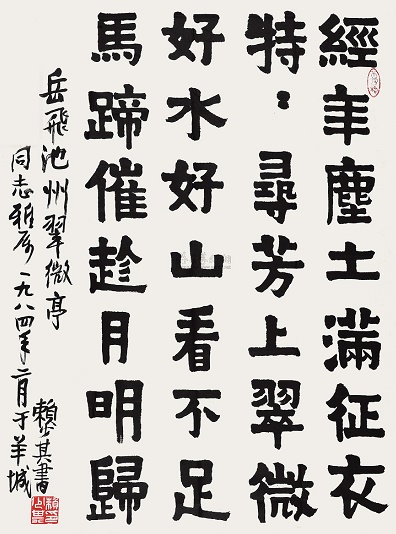 經年塵土滿征衣
特〻尋芳上翠微
好水好山看不足
馬蹄催趁月明歸
岳飛池州翠微亭
同志雅属一九八四年二月于羊城
賴少其書